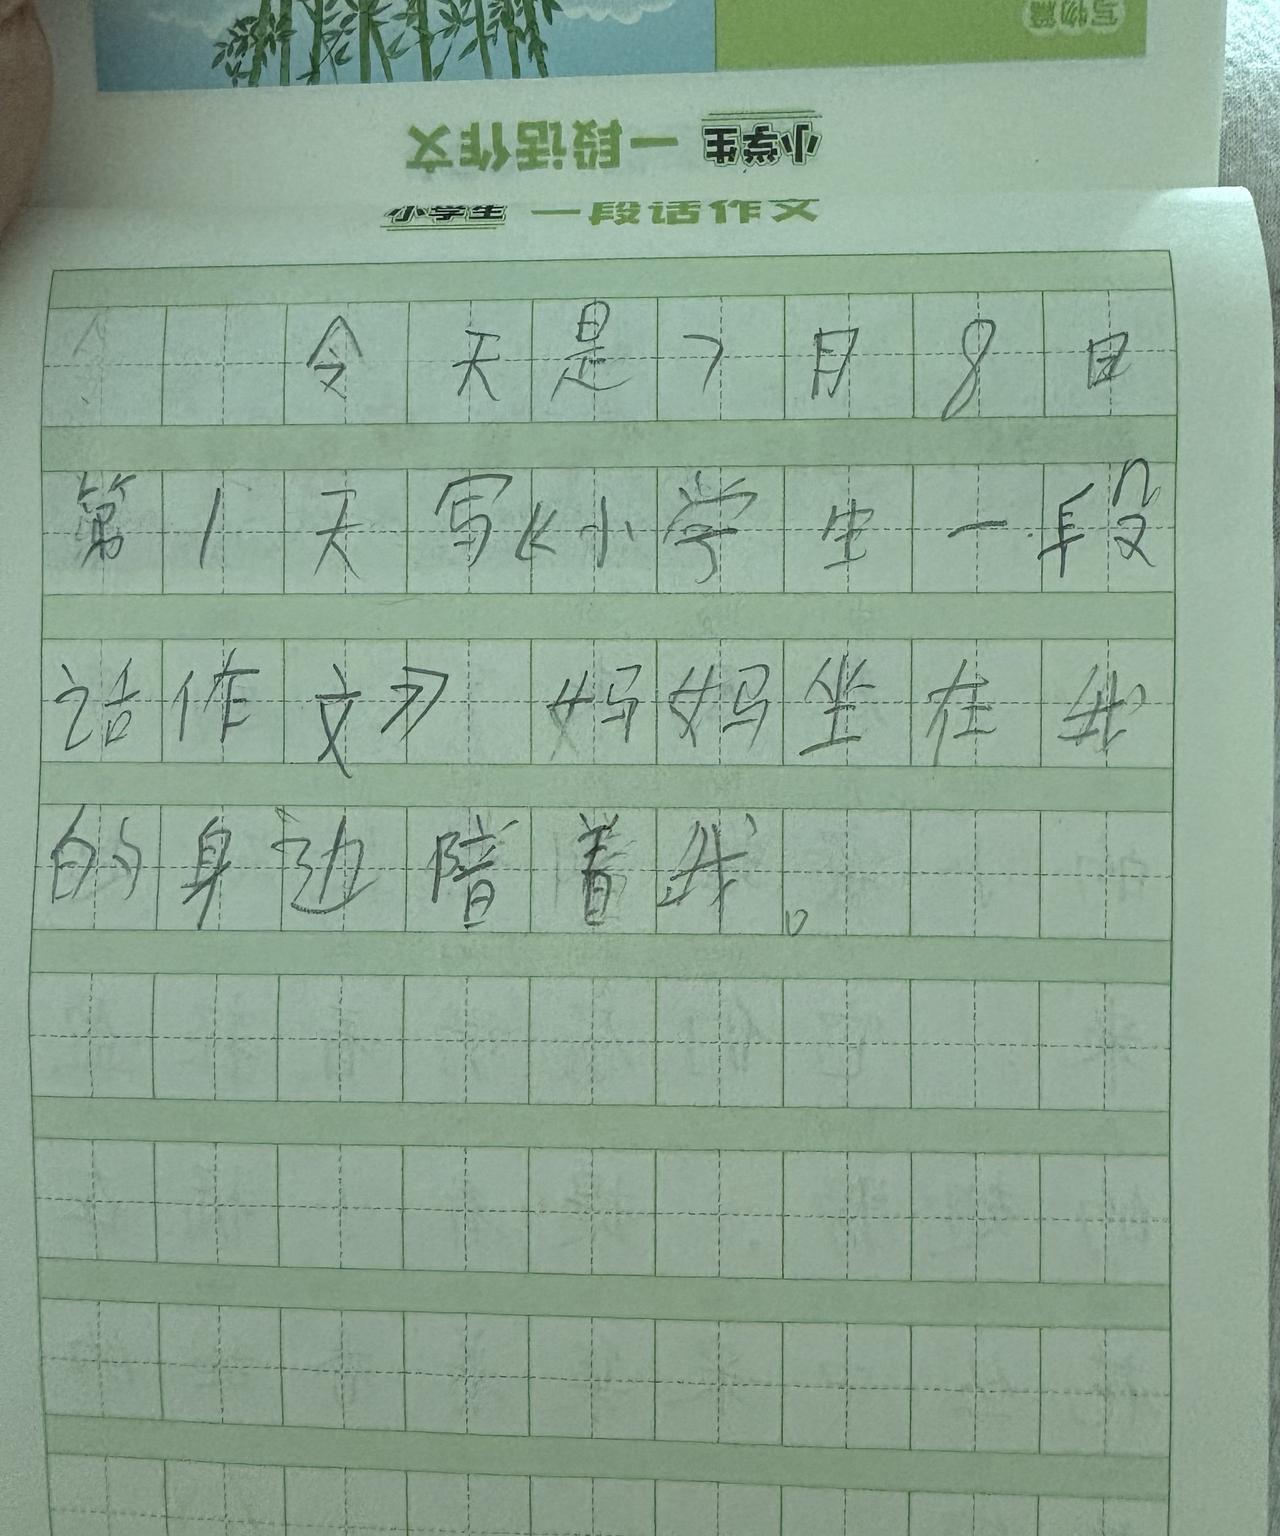 写物篇
小学生 一段话作文
小学生 一段话作文
令天是7月8日
第1天写《小学生一段
话作文》 妈妈坐在我
的身边陪着我。